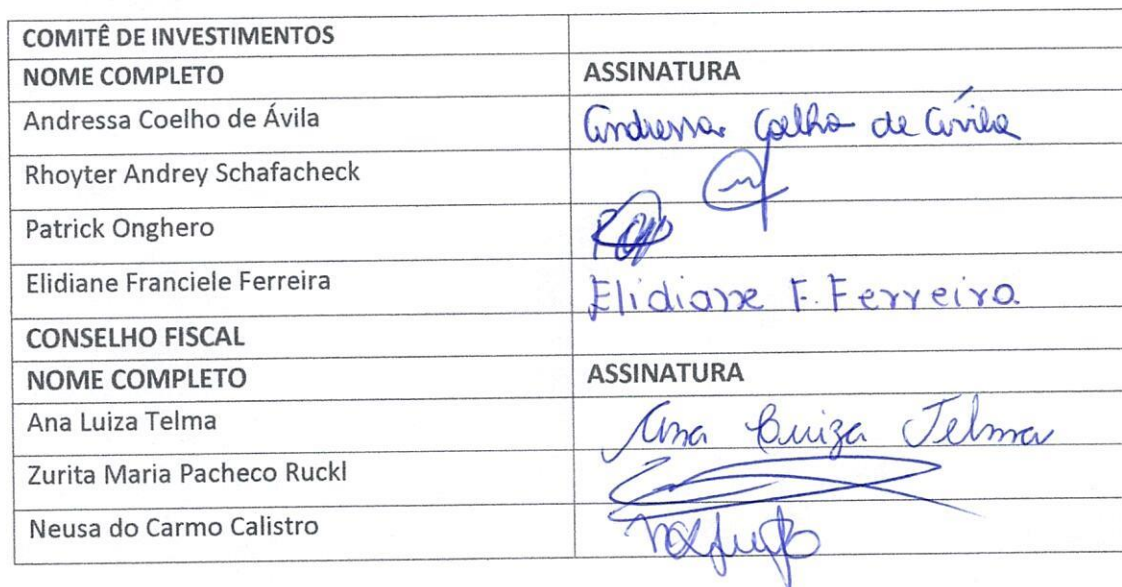 COMITÊ DE INVESTIMENTOS
NOME COMPLETO ASSINATURA
Andressa Coelho de Ávila Andressa Coelho de Ávila
Rhoyter Andrey Schafacheck
Patrick Onghero
Elidiane Franciele Ferreira Elidiane F. Ferreira
CONSELHO FISCAL
NOME COMPLETO ASSINATURA
Ana Luiza Telma Ana Luiza Telma
Zurita Maria Pacheco Ruckl
Neusa do Carmo Calistro